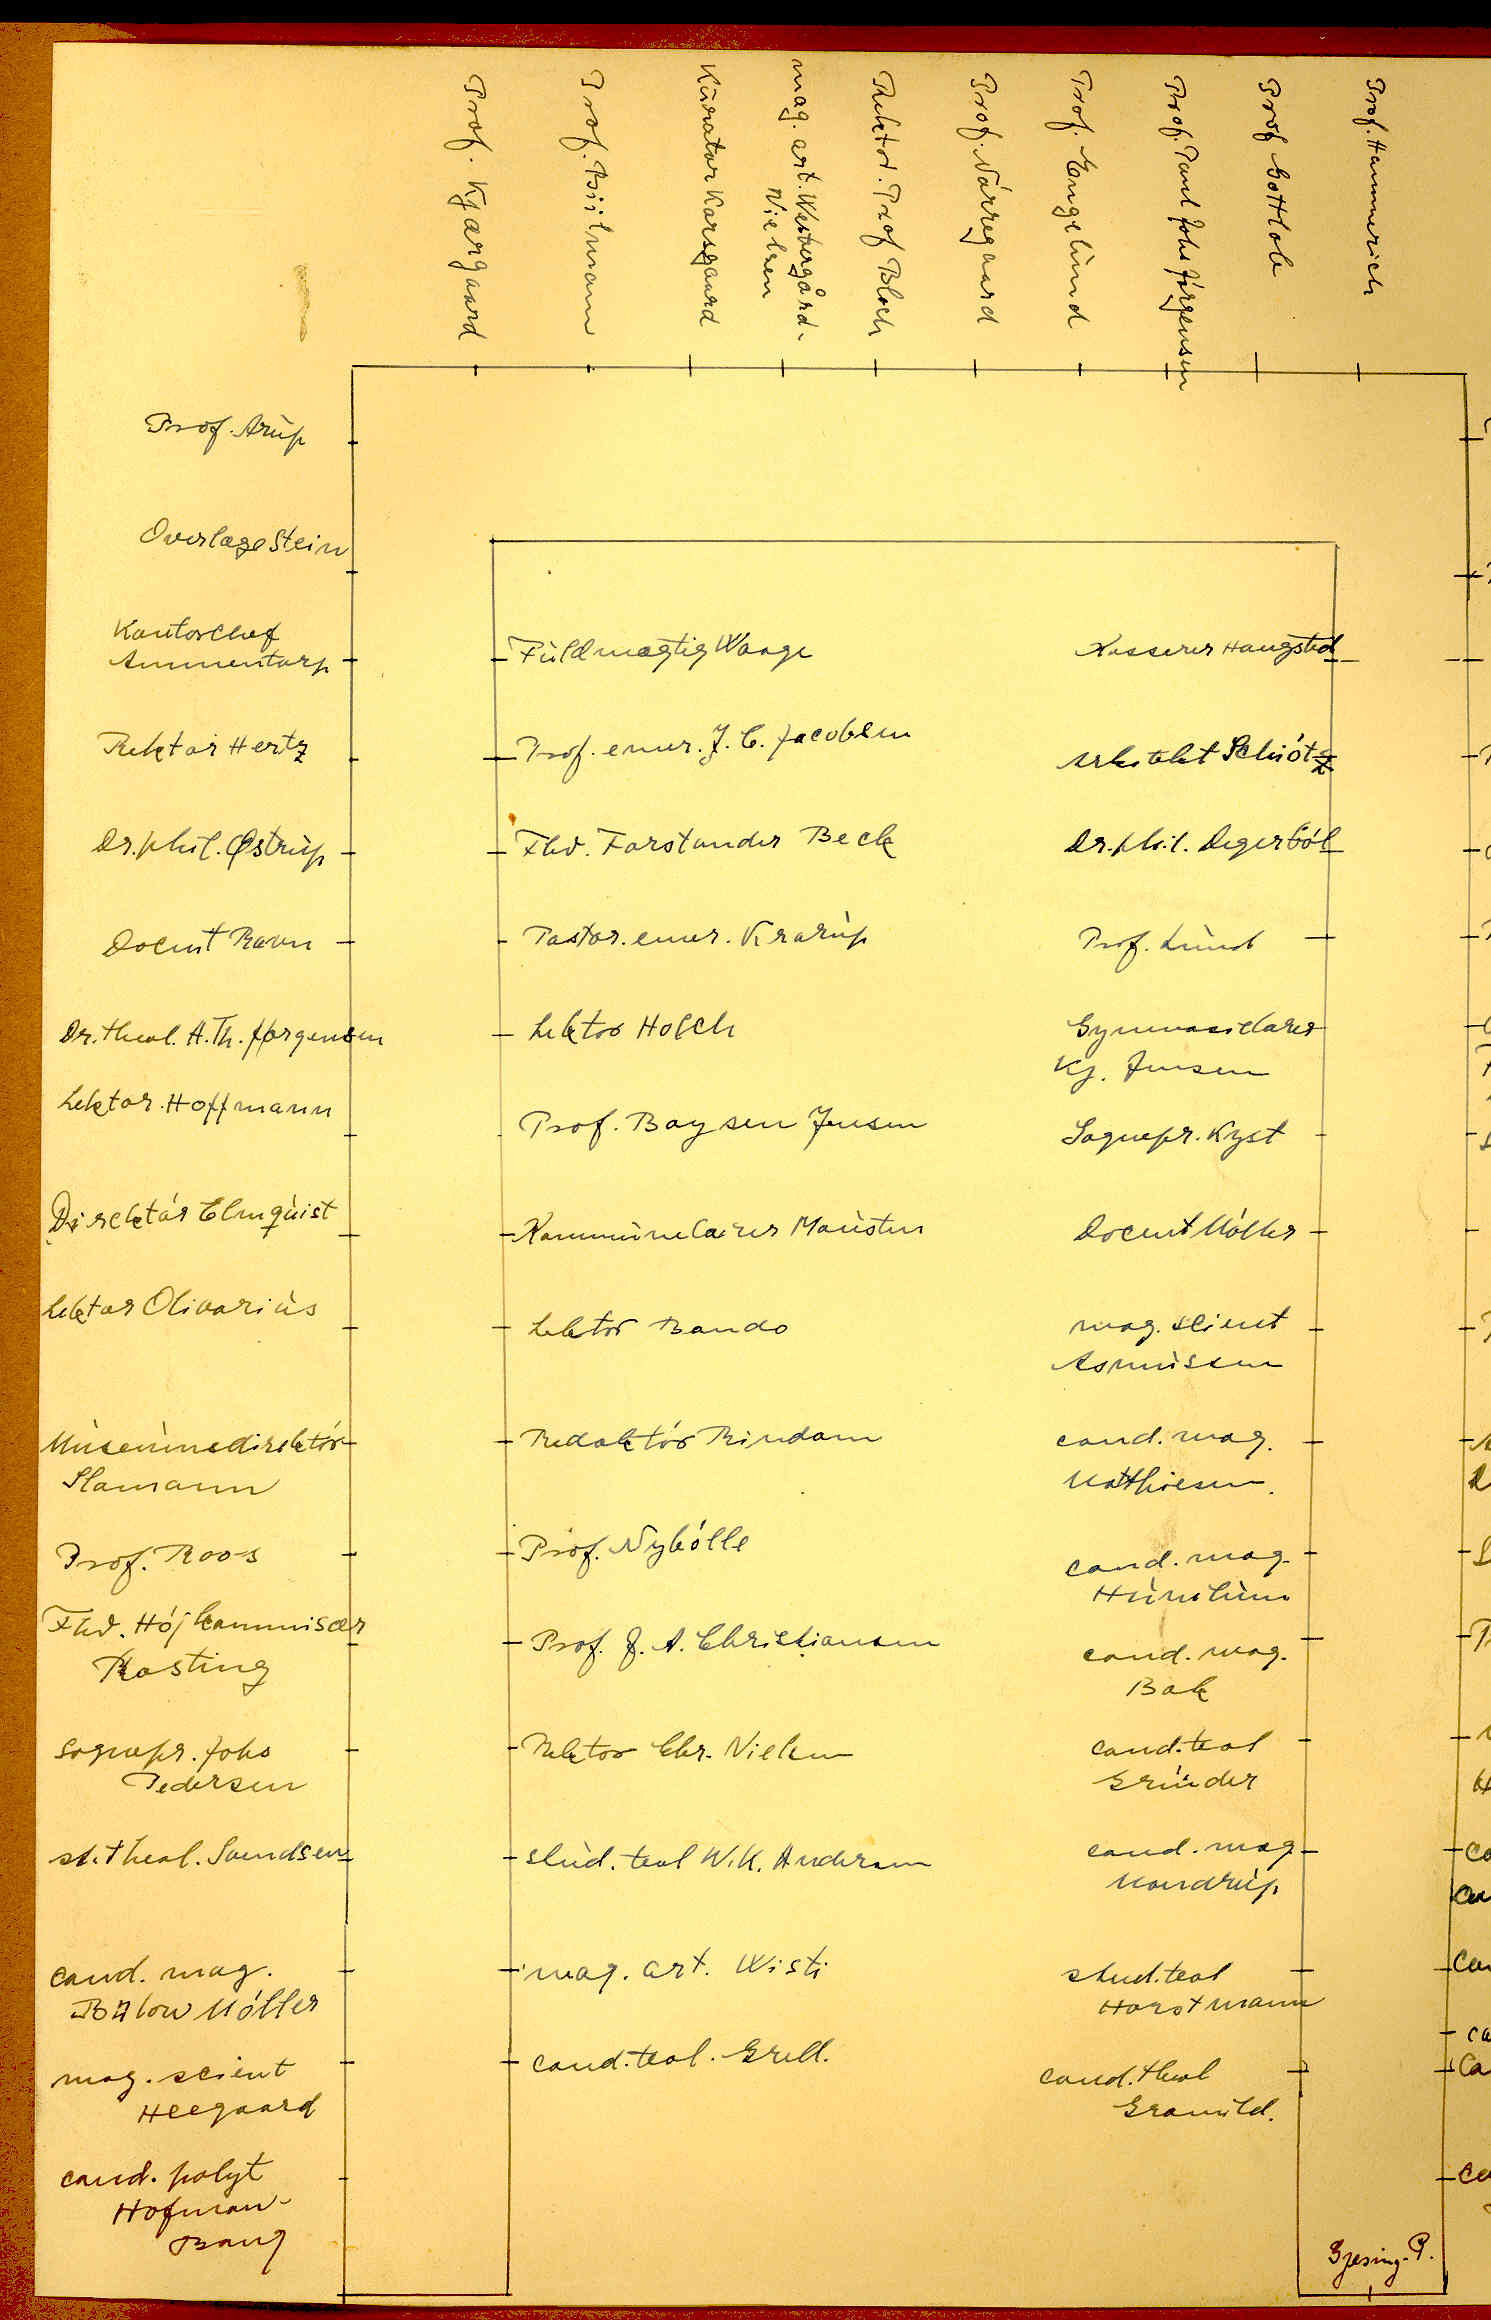 Prof. Kjærgaard
Prof. Biilmann
Kurator Korsgaard
mag. art. Westergård-
Nielsen
Rektor. Prof Bloch
Prof. Nórregaard
Prof. Engelund
Prof. Poul Johs Jórgensen
Prof Gottlob
Prof. Hammerich
Prof. Arup
Overlæge Stein
Kontorchef
Ammentorp
Fuldmægtig Waage
Kasserer Haugsted
Rektor Hertz
Prof. emer. J. C. Jacobsen
Arkitekt Schiótz
Dr. phil. Østrup
Fhv. Forstander Beck
Dr. phil. Degerból
Docent Ravn
Pastor. emer. Krarup
Prof. Lund
Dr. theol. A. Th. Jørgensen
Lektor Holch
Gymnasielærer
Kj. Jensen
Lektor. Hoffmann
Prof. Boysen Jensen
Sognepr. Kyst
Direktór Elmquist
Kommunelærer Mousten
Docent Móller
Lektor Olivarius
Lektor Bando
mag. scient
Asmussen
Museumsdirektór
Slomann
Redaktór Rindom
cand. mag.
Matthiesen.
Prof. Roos
Prof. Nybólle
cand. mag.
Fhv. Hójkommissær
Rosting
Prof. J. A. Christiansen
cand. mag.
Bak
Sognepr. Johs
Pedersen
Rektor Chr. Nielsen
cand. teol
Gründer
st. theol. Svendsen
stud. teol W. K. Andersen
cand. mag
Mondrup
cand. mag.
Bülow Móller
mag. art. Wisti
stud. teol
Horstmann
mag. scient
Heegaard
cand. teol. Grell.
cand. theol
Gramild.
cand. polyt
Hofman-
Bang
Gjesing-P.